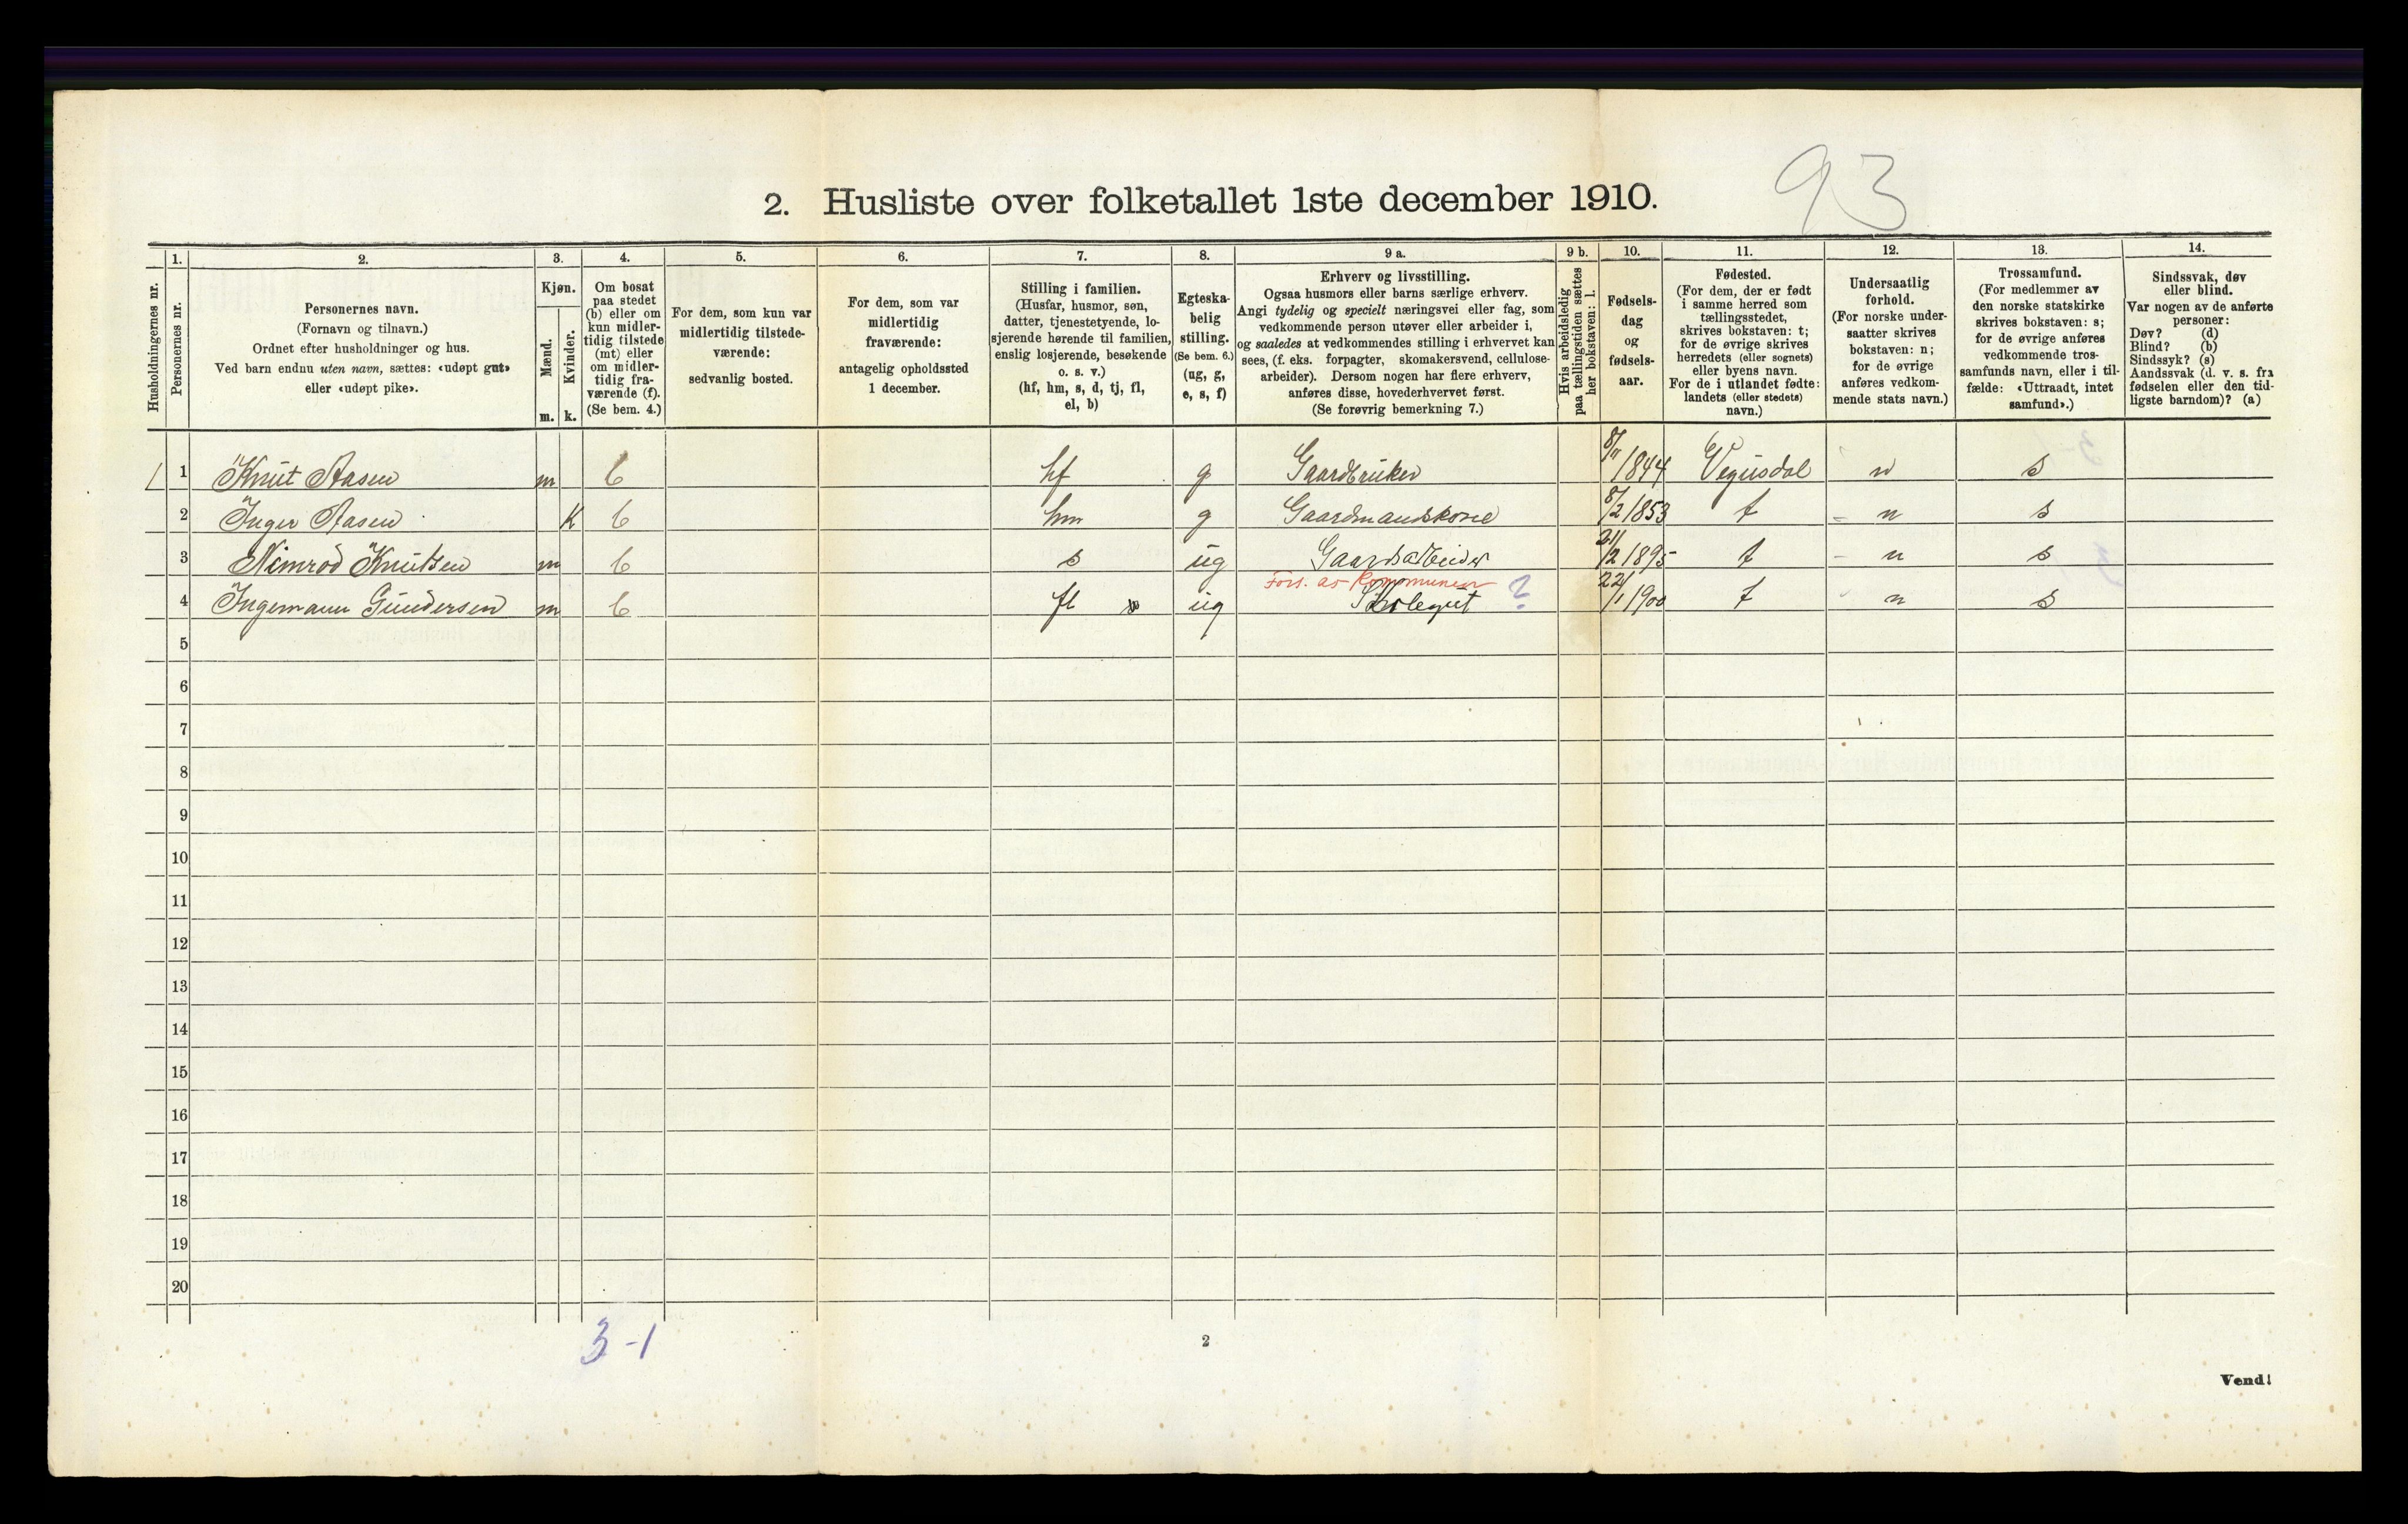 93
2. Husliste over folketallet 1ste december 1910.
Husholdningernes nr.
1. Personernes nr.
2. Personernes navn.
(Fornavn og tilnavn.)
Ordnet efter husholdninger og hus.
Ved barn endnu uten navn, sættes: «udøpt gut»
eller «udøpt pike».
3. Kjøn.
Mænd. m.
Kvinder. k.
4. Om bosat
paa stedet
(b) eller om
kun midler-
tidig tilstede
(mt) eller
om midler-
tidig fra-
værende (f).
(Se bem. 4.)
5. For dem, som kun var
midlertidig tilstede-
værende:
sedvanlig bosted.
6. For dem, som var
midlertidig
fraværende:
antagelig opholdssted
1 december.
7. Stilling i familien.
(Husfar, husmor, søn,
datter, tjenestetyende, lo-
sjerende hørende til familien,
enslig losjerende, besøkende
o. s. v.)
(hf, hm, s, d, tj, fl,
el, b)
8. Egteska-
belig
stilling.
(Se bem. 6.)
(ug, g,
e, s, f)
9 a. Erhverv og livsstilling.
Ogsaa husmors eller barns særlige erhverv.
Angi tydelig og specielt næringsvei eller fag, som
vedkommende person utøver eller arbeider i,
og saaledes at vedkommendes stilling i erhvervet kan
sees, (f. eks. forpagter, skomakersvend, cellulose-
arbeider). Dersom nogen har flere erhverv,
anføres disse, hovederhvervet først.
(Se forøvrig bemerkning 7.)
9 b. Hvis arbeidsledig
paa tællingstiden sættes
her bokstaven: l.
10. Fødsels-
dag
og
fødsels-
aar.
11. Fødested.
(For dem, der er født
i samme herred som
tællingsstedet,
skrives bokstaven: t;
for de øvrige skrives
herredets (eller sognets)
eller byens navn.
For de i utlandet fødte:
landets (eller stedets)
navn.)
12. Undersaatlig
forhold.
(For norske under-
saatter skrives
bokstaven: n;
for de øvrige
anføres vedkom-
mende stats navn.)
13. Trossamfund.
(For medlemmer av
den norske statskirke
skrives bokstaven: s;
for de øvrige anføres
vedkommende tros-
samfunds navn, eller i til-
fælde: «Uttraadt, intet
samfund».)
14. Sindssvak, døv
eller blind.
Var nogen av de anførte
personer:
Døv? (d)
Blind? (b)
Sindssyk? (s)
Aandssvak (d. v. s. fra
fødselen eller den tid-
ligste barndom)? (a)
1 1 Knut Aasen m b hf g Gaardbruker 8/11 1844 Vegusdal n s
2 Inger Aasen K b hm g Gaardmandskone 8/2 1853 t n s
3 Nimrod Knutsen m b s ug Gaardsarbeider 21/2 1895 t n s
Fors. av Kommunen
4 Ingemann Gundersen m b fl ug Skolegut ? 22/1 1900 t n s
5
6
7
8
9
10
11
12
13
14
15
16
17
18
19
20
3-1
2
Vend!